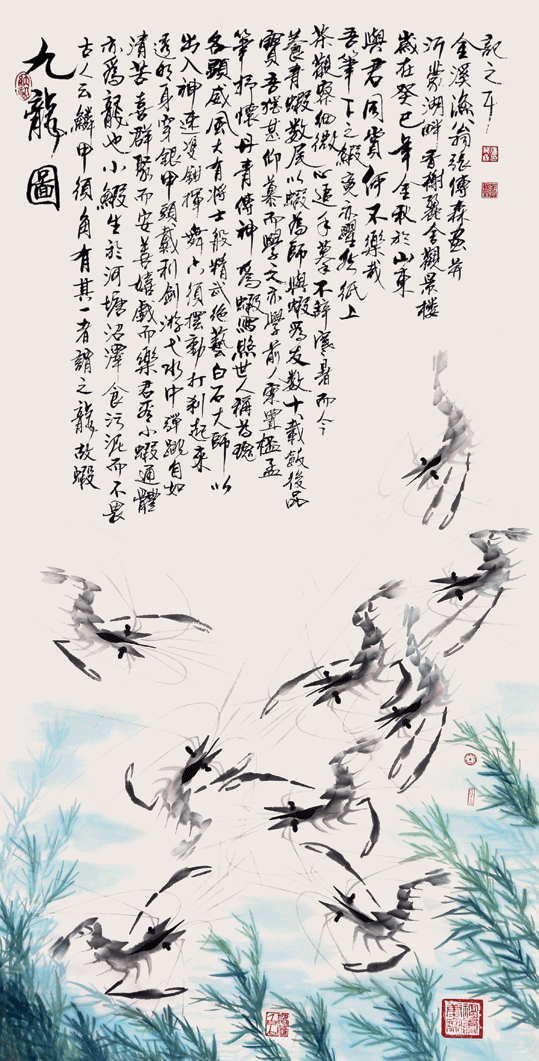 九龍圖
古人云鱗甲須角有其一者謂之龍故蝦
亦為龍也小蝦生於河塘沼澤食污泥而不畏
清苦喜群聚而安善嬉戲而樂君看小蝦通體
透明身穿銀甲頭戴利劍游弋水中彈跳自如
出入神速鉗揮舞六須擺動打起來
各顯威風大有將士般精武絕藝白石大師以
筆抒懷丹青傳神為蝦寫照世人稱為瑰
寶吾甚仰慕而學之亦學前人案置盂
養青蝦數尾以蝦為師與蝦為友數十載飯後品
茶觀察細微心追手摹不辭寒暑而今
吾筆下之蝦竟亦躍然紙上
與君同賞何不樂哉
歲在癸巳年金秋於山東
沂蒙湖畔香榭麗舍觀景樓
金溪漁翁張傳森畫并
記之耳